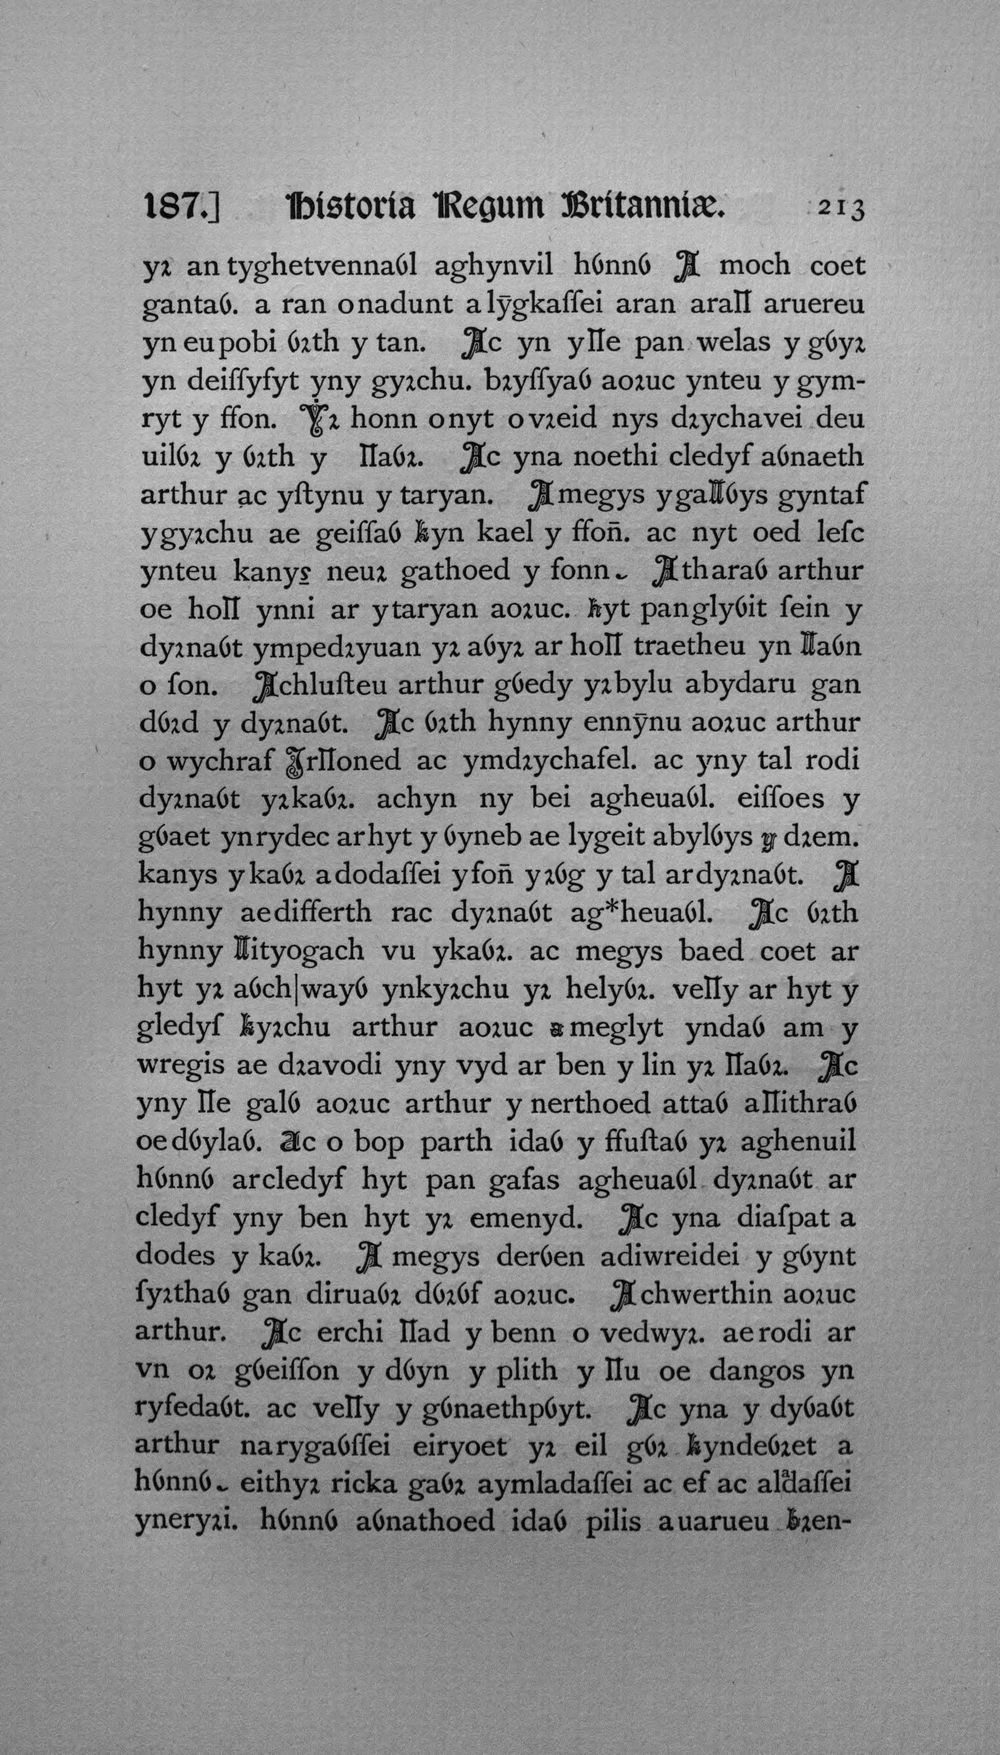 187.] Historia Regum Britanniæ. 213
yꝛ an tyghetvennaỽl aghynvil hỽnnỽ A moch coet
gantaỽ. a ran onadunt alȳgkaſſei aran araỻ aruereu
yn eu pobi ỽꝛth y tan. Ac yn yỻe pan welas y gỽyꝛ
yn deiſſyfyt yny gyꝛchu. bꝛyſſyaỽ aoꝛuc ynteu y gym-
ryt y ffon. Yꝛ honn onyt ovꝛeid nys dꝛychavei deu
uilỽꝛ y ỽꝛth y ỻaỽꝛ. Ac yna noethi cledyf aỽnaeth
arthur ac yſtynu y taryan. Amegys ygaỻỽys gyntaf
ygyꝛchu ae geiſſaỽ kyn kael y ffon̄. ac nyt oed leſc
ynteu kanys neuꝛ gathoed y fonn. Atharaỽ arthur
oe hoỻ ynni ar ytaryan aoꝛuc. kyt panglyỽit ſein y
dyꝛnaỽt ympedꝛyuan yꝛ aỽyꝛ ar hoỻ traetheu yn ỻaỽn
o ſon. Achluſteu arthur gỽedy yꝛbylu abydaru gan
dỽꝛd y dyꝛnaỽt. Ac ỽꝛth hynny ennȳnu aoꝛuc arthur
o wychraf Jrỻoned ac ymdꝛychafel. ac yny tal rodi
dyꝛnaỽt yꝛkaỽꝛ. achyn ny bei agheuaỽl. eiſſoes y
gỽaet ynrydec arhyt y ỽyneb ae lygeit abylỽys y dꝛem.
kanys ykaỽꝛ adodaſſei yfon̄ yꝛỽg y tal ardyꝛnaỽt. A
hynny aedifferth rac dyꝛnaỽt ag*heuaỽl. Ac ỽꝛth
hynny ỻityogach vu ykaỽꝛ. ac megys baed coet ar
hyt yꝛ aỽch|wayỽ ynkyꝛchu yꝛ helyỽꝛ. veỻy ar hyt y
gledyf kyꝛchu arthur aoꝛuc a meglyt yndaỽ am y
wregis ae dꝛavodi yny vyd ar ben y lin yꝛ ỻaỽꝛ. Ac
yny ỻe galỽ aoꝛuc arthur y nerthoed attaỽ aỻithraỽ
oedỽylaỽ. ac o bop parth idaỽ y ffuſtaỽ yꝛ aghenuil
hỽnnỽ arcledyf hyt pan gafas agheuaỽl dyꝛnaỽt ar
cledyf yny ben hyt yꝛ emenyd. Ac yna diaſpat a
dodes y kaỽꝛ. A megys derỽen adiwreidei y gỽynt
ſyꝛthaỽ gan diruaỽꝛ dỽꝛỽf aoꝛuc. Achwerthin aoꝛuc
arthur. Ac erchi ỻad y benn o vedwyꝛ. aerodi ar
vn oꝛ gỽeiſſon y dỽyn y plith y ỻu oe dangos yn
ryfedaỽt. ac veỻy y gỽnaethpỽyt. Ac yna y dyỽaỽt
arthur narygaỽſſei eiryoet yꝛ eil gỽꝛ kyndeỽꝛet a
hỽnnỽ. eithyꝛ ricka gaỽꝛ aymladaſſei ac ef ac aladaſſei
yneryꝛi. hỽnnỽ aỽnathoed idaỽ pilis auarueu bꝛen-